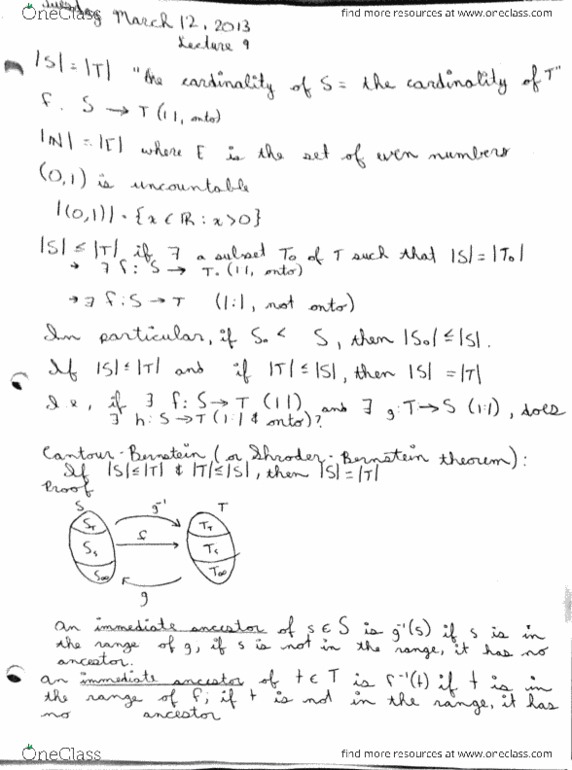 OneClass
find more resources at www.oneclass.com
March 12, 2013
Lecture 9
|S| = |T| "the cardinality of S = the cardinality of T"
f: S → T (1:1, onto)
|N| = |E| where E is the set of even numbers
(0,1) is uncountable
|(0,1)| = {x ∈ R : x > 0}
|S| ≤ |T| if ∃ a subset T₀ of T such that |S| = |T₀|
→ ∃ f: S → T₀ (1:1, onto)
→ ∃ f: S → T (1:1, not onto)
In particular, if S₀ < S, then |S₀| ≤ |S|.
If |S| ≤ |T| and if |T| ≤ |S|, then |S| = |T|
I.e, if ∃ f: S → T (1:1) and ∃ g: T → S (1:1), does
∃ h: S → T (1:1 & onto)?
Cantour-Bernstein (or Shroder-Bernstein theorem):
If |S| ≤ |T| & |T| ≤ |S|, then |S| = |T|
Proof
S g⁻¹ T
S_T f T_T
S_S T_S
S∞ T∞
g
an immediate ancestor of s ∈ S is g⁻¹(s) if s is in
the range of g, if s is not in the range, it has no
ancestor.
an immediate ancestor of t ∈ T is f⁻¹(t) if t is in
the range of f; if t is not in the range, it has
no ancestor
OneClass
find more resources at www.oneclass.com